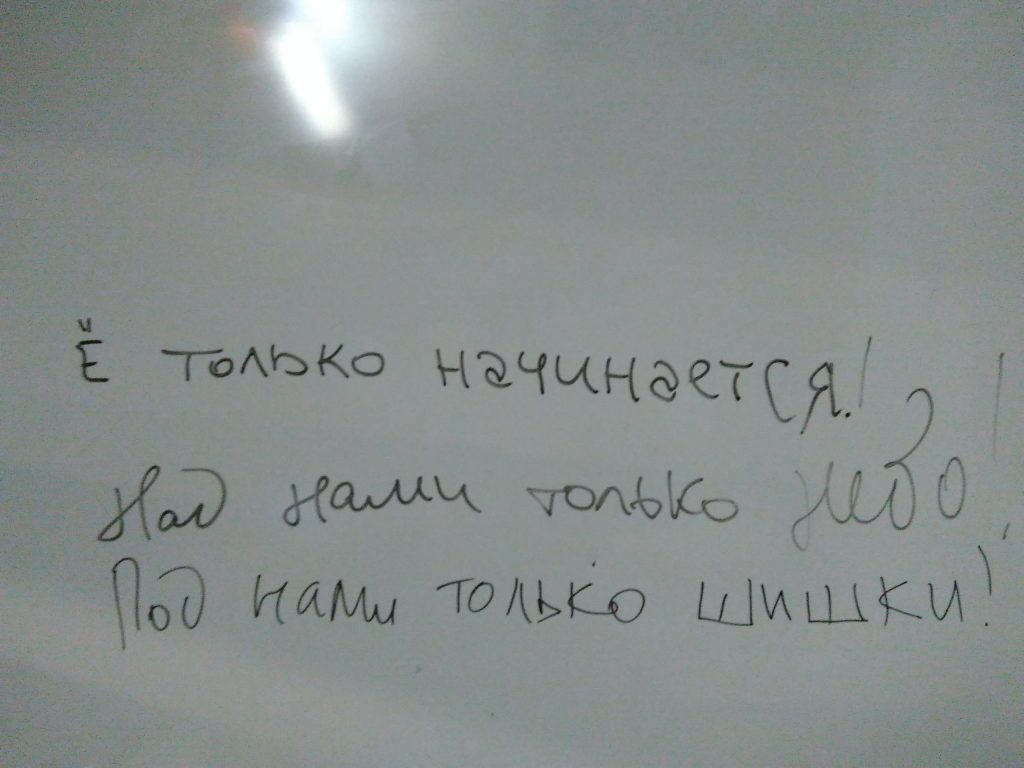 Ё только начинается!
Над нами только небо!
Под нами только шишки!